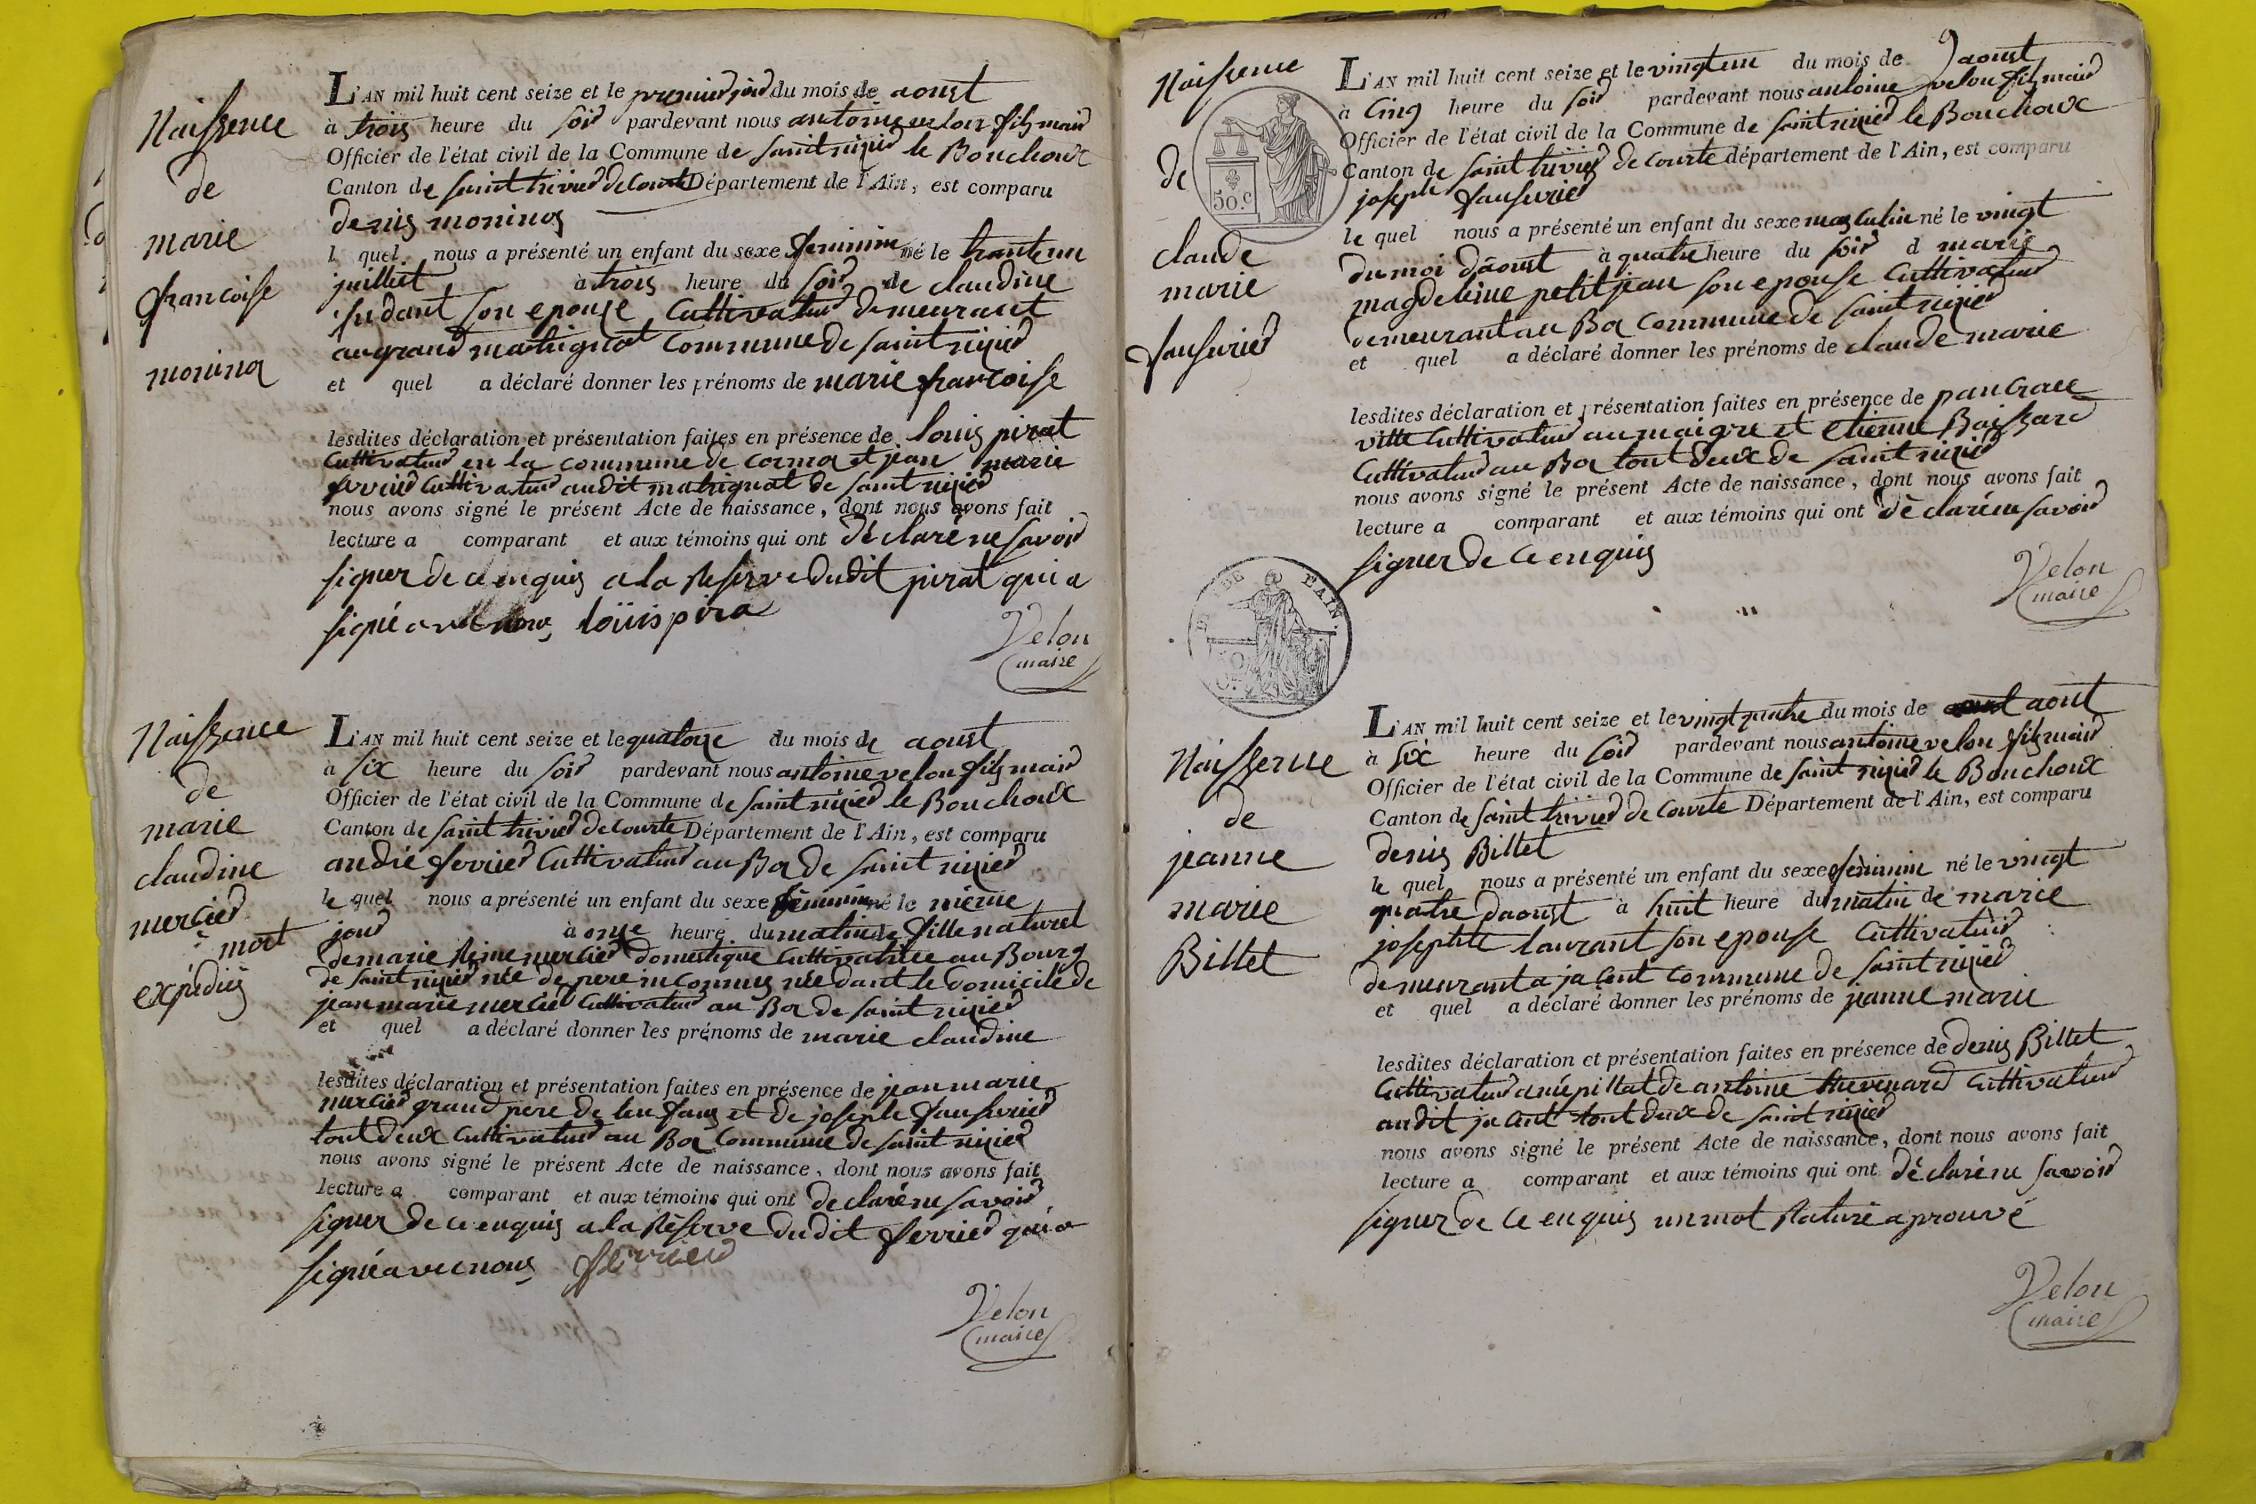 Naissence
de
marie
francoise
moninot
L'AN mil huit cent seize et le premier jour du mois de aoust
à trois heure du soir pardevant nous antoine velon fils maire
Officier de l'état civil de la Commune de saint nizier le Bouchoux
Canton de saint trivier de Courte Département de l'Ain, est comparu
denis moninot
l quel nous a présenté un enfant du sexe feminin né le trante un
juilliet à trois heure du soir de claudine
son epouse Cultivateur demeurant
au grand matrignat Commune de saint nizier
et quel a déclaré donner les prénoms de marie francoise
lesdites déclaration et présentation faites en présence de louis pirat
Cultivateur en la commune de et jean marie
Cultivateur audit matrignat de saint nizier
nous avons signé le présent Acte de naissance, dont nous avons fait
lecture a comparant et aux témoins qui ont déclaré ne savoir
signer de ce enquis a la Reserve dudit pirat qui a
signé avec nous loüis pira
Velon
maire
Naissence
de
marie
claudine
mercier
mort
expédiés
L'AN mil huit cent seize et le quatorze du mois de aoust
à six heure du soir pardevant nous antoine velon fils maire
Officier de l'état civil de la Commune de saint nizier le Bouchoux
Canton de saint trivier de Courte Département de l'Ain, est comparu
andré ferrier Cultivateur au de saint nizier
le quel nous a présenté un enfant du sexe féminin né le mème
jour à onze heure du matin de fille naturel
de marie Reine mercier domestique Cultivatrice au Bourg
de saint nizier née de pere inconnus née dant le domicile de
jean marie mercier Cultivateur au de saint nizier
et quel a déclaré donner les prénoms de marie claudine
lesdites déclaration et présentation faites en présence de jean marie
mercier grand pere de et de joseph faussurier
tout deux Cultivateur au Commune de saint nizier
nous avons signé le présent Acte de naissance, dont nous avons fait
lecture a comparant et aux témoins qui ont déclaré ne savoir
signer de ce enquis a la Réserve dudit ferrier qui a
signé avec nous ferrier
Velon
maire
Naissence
de
claude
marie
L'AN mil huit cent seize et le vingt un du mois de aoust
à cinq heure du soir pardevant nous antoine velon fils maire
Officier de l'état civil de la Commune de saint nizier le Bouchoux
Canton de saint trivier de Courte département de l'Ain, est comparu
joseph
le quel nous a présenté un enfant du sexe masculin né le vingt
du moi daoust à quatre heure du soir d marie
magdeleine petitjean son epouse Cultivateur
demeurant au Commune de saint nizier
et quel a déclaré donner les prénoms de claude marie
lesdites déclaration et présentation faites en présence de pancrace
Cultivateur au maigre et etienne Baissard
Cultivateur au tout deux de saint nizier
nous avons signé le présent Acte de naissance, dont nous avons fait
lecture a comparant et aux témoins qui ont déclaré ne savoir
signer de ce enquis
Velon
maire
50.C
DE L'AIN.
Naissence
de
jeanne
marie
Billet
L'AN mil huit cent seize et le vingt quatre du mois de aout
à six heure du soir pardevant nous antoine velon fils maire
Officier de l'état civil de la Commune de saint nizier le Bouchoux
Canton de saint trivier de Courte Département de l'Ain, est comparu
denis Billet
le quel nous a présenté un enfant du sexe féminin né le vingt
quatre daoust à huit heure du matin de marie
josephte laurant son epouse Cultivateur
demeurant a jacent commune de saint nizier
et quel a déclaré donner les prénoms de jeanne marie
lesdites déclaration et présentation faites en présence de denis Billet
Cultivateur de antoine thevenard Cultivateur
audit jacent tout deux de saint nizier
nous avons signé le présent Acte de naissance, dont nous avons fait
lecture a comparant et aux témoins qui ont déclaré ne savoir
signer de ce enquis un mot Raturé aprouvé
Velon
maire